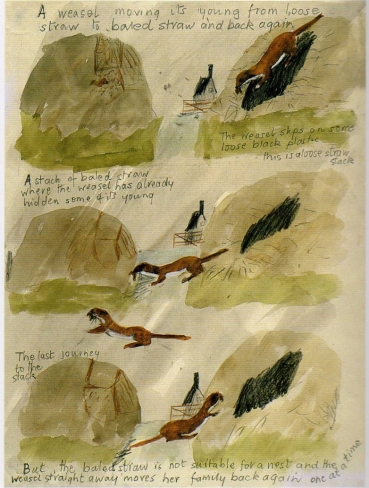 A weasel moving its young from loose
straw to baled straw and back again
The weasel slips on some
loose black plastic
- this is a loose straw
stack
A stack of baled straw
where the weasel has already
hidden some of its young
The last journey
to the
stack
But, the baled straw is not suitable for a nest and the
weasel straight away moves her family back again one at a time